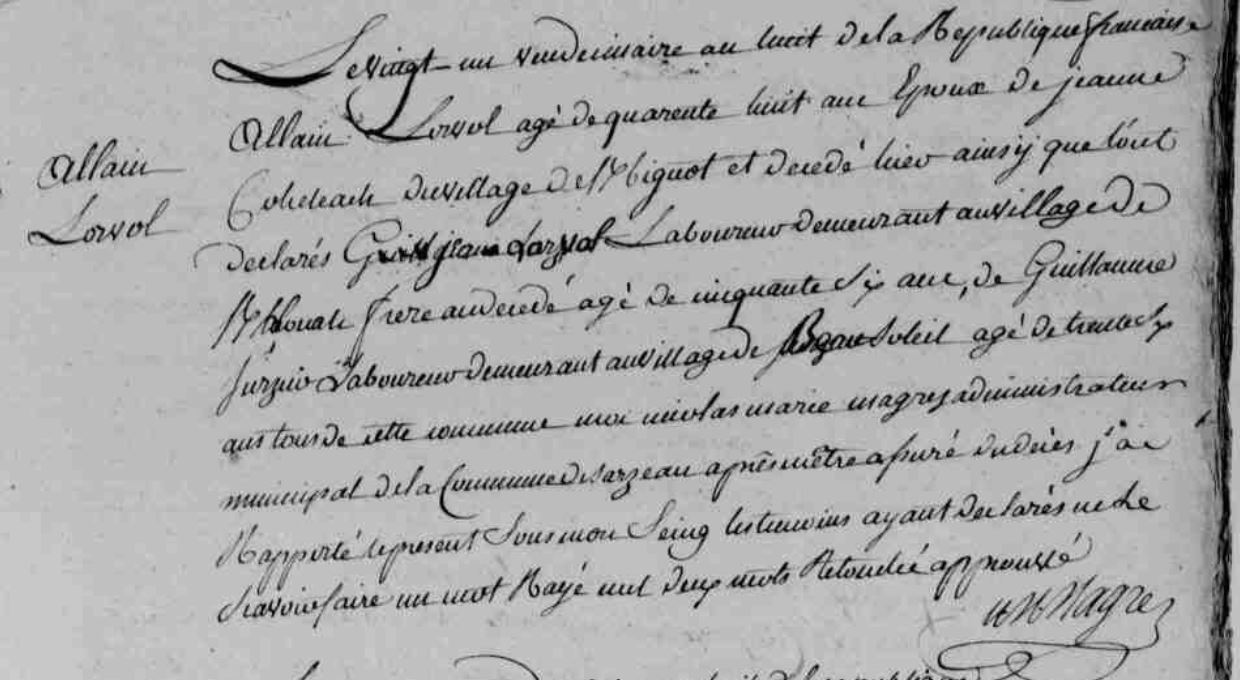 Le vingt un vendemiaire an huit de la Republique francaise
Allain Lorvol agé de quarente huit ans Epoux de jeanne
Allain
Lorvol
du village de et decedé hier ainsÿ que l'ont
declarés jean Lorvol Laboureur demeurant au village de
frere au decedé agé de cinquante six ans, de Guillaume
Laboureur demeurant au village de Beausoleil agé de trente six
ans tous de cette commune moi nicolas marie magrez administrateur
municipal de la Commune de sarzeau aprés m'être assuré du décés j'ai
Rapporté le present Sous mon Seing les temoins ayant declarés ne le
savoir faire un mot Rayé nul deux mots Retouché approuvé
Magrez